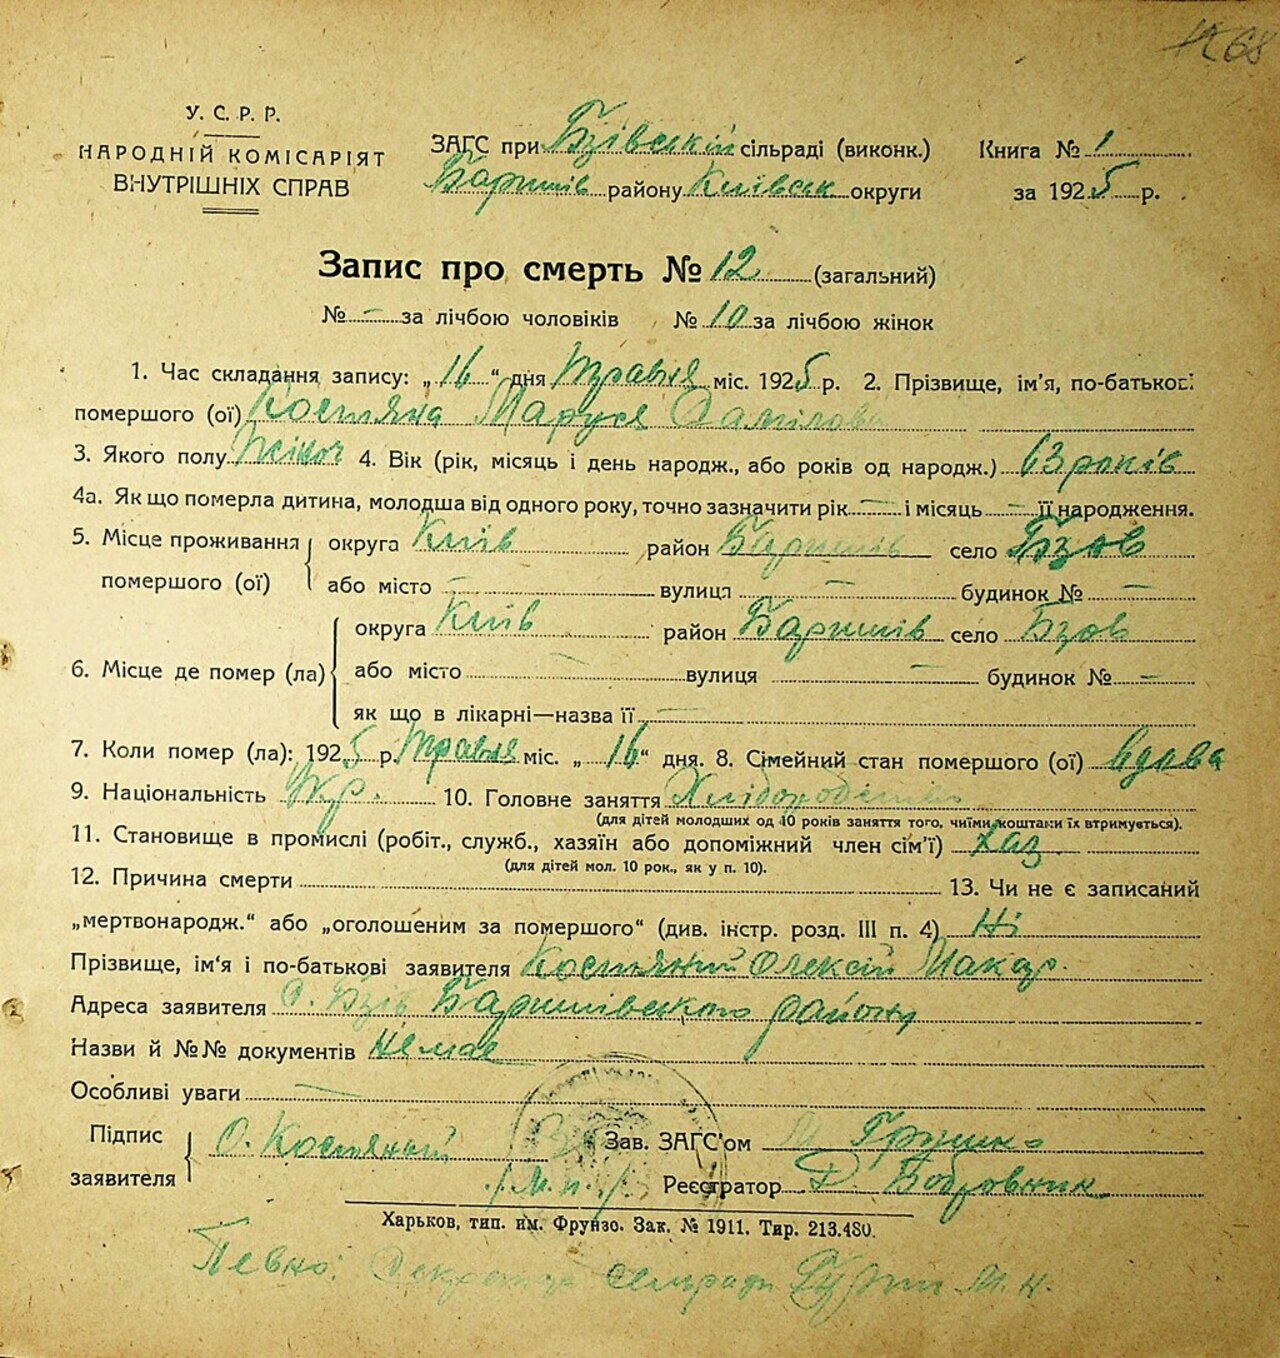 68
У. С. Р. Р.
НАРОДНІЙ КОМІСАРІЯТ
ВНУТРІШНІХ СПРАВ
ЗАГС при Бзівській сільраді (виконк.)
Баришів району Київськ округи
Книга № 1
за 1925 р.
Запис про смерть № 12 (загальний)
№ — за лічбою чоловіків № 10 за лічбою жінок
1. Час складання запису: „16“ дня Травня міс. 1925 р. 2. Прізвище, ім'я, по-батькові
помершого (ої) Костяна Маруся Данілова
3. Якого полу Жіноч 4. Вік (рік, місяць і день народж., або років од народж.) 63 років
4а. Як що померла дитина, молодша від одного року, точно зазначити рік — і місяць — її народження.
5. Місце проживання помершого (ої) округа Київ район Баришів село Бзов
або місто — вулиця — будинок № —
6. Місце де помер (ла) округа Київ район Баришів село Бзов
або місто — вулиця — будинок № —
як що в лікарні—назва її —
7. Коли помер (ла): 1925 р. Травня міс. „16“ дня. 8. Сімейний стан помершого (ої) вдова
9. Національність Укр. 10. Головне заняття Хліборобство
(для дітей молодших од 10 років заняття того, чиїми коштами їх втримується).
11. Становище в промислі (робіт., служб., хазяїн або допоміжний член сім'ї) хаз.
(для дітей мол. 10 рок., як у п. 10).
12. Причина смерти 13. Чи не є записаний
„мертвонародж.“ або „оголошеним за помершого“ (див. інстр. розд. III п. 4) Ні
Прізвище, ім'я і по-батькові заявителя Костяний Олексій Макар.
Адреса заявителя с. Бзів Баришівського району
Назви й №№ документів Немає
Особливі уваги —
Підпис заявителя О. Костяний Зав. ЗАГС'ом Грушко
/М.п./ Реєстратор Бобровник
Харьков, тип. им. Фрунзо. Зак. № 1911. Тир. 213.480.
Певно: Секретар сельради М. Н.